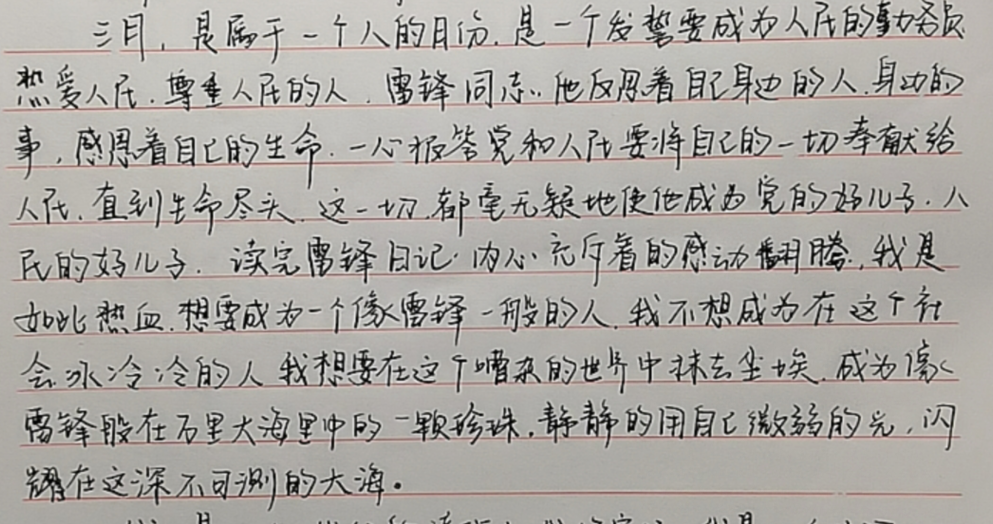 三月,是属于一个人的月份.是一个发誓要成为人民的勤务员
热爱人民.尊重人民的人.雷锋同志..他反思着自己身边的人.身边的
事,感恩着自己的生命.一心报答党和人民要将自己的一切奉献给
人民.直到生命尽头.这一切.都毫无疑地使他成为党的好儿子.人
民的好儿子.读完雷锋日记.内心充斥着的感动翻腾.我是
如此热血.想要成为一个像雷锋一般的人.我不想成为在这个社
会冰冷冷的人我想要在这个嘈杂的世界中抹去尘埃.成为像
雷锋般在万里大海里中的一颗珍珠.静静的用自己微弱的光,闪
耀在这深不可测的大海。